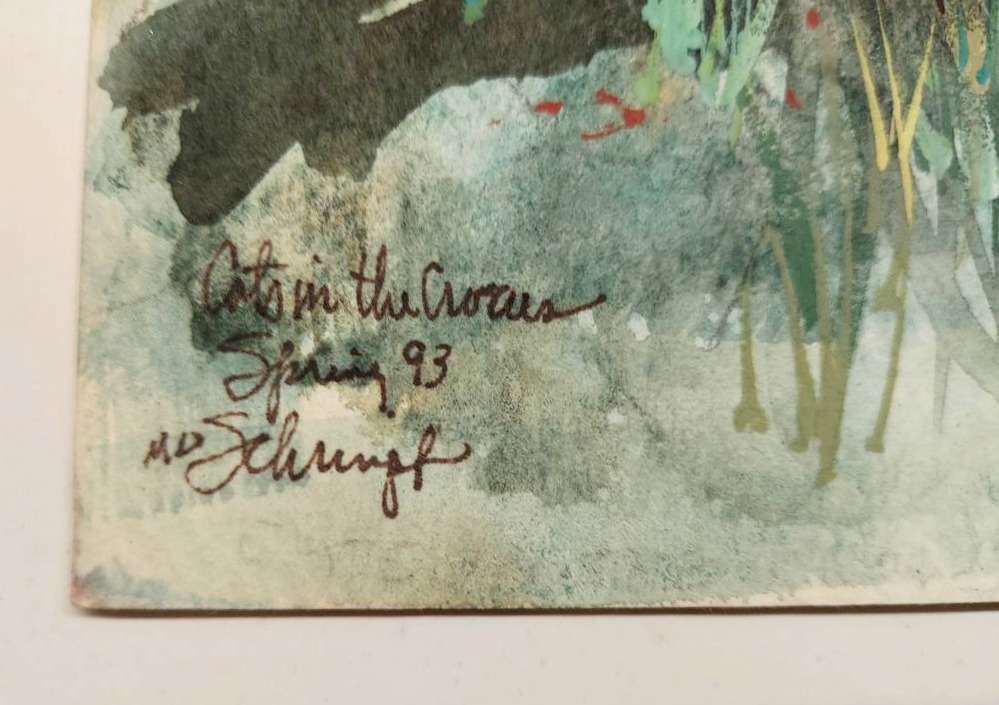 Cats in the Crocus
Spring 93
MD Schrimpf